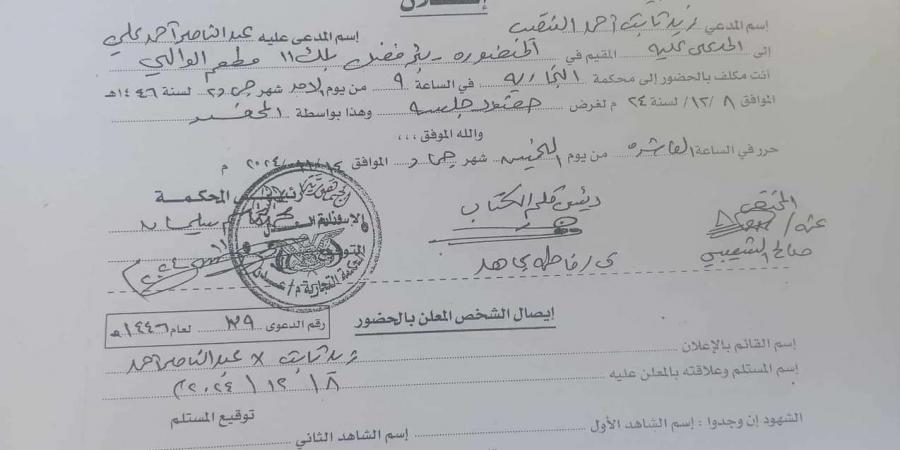 إعـــلان
إسم المدعي زيد ثابت احمد النقيب إسم المدعى عليه عبدالناصر احمد علي
إلى المدعى عليه المقيم في المنصورة بئر فضل بلك ١١ مطعم الوالي
انت مكلف بالحضور إلى محكمة التجارية في الساعة ٩ من يوم الاحد شهر لسنة ١٤٤٦هـ
الموافق ٨ /١٢/ لسنة ٢٤ م لغرض حضور جلسة وهذا بواسطة المحضر
والله الموفق ،،،
حرر في الساعة العاشرة من يوم الخميس شهر جماد الموافق / /٢٠٢٤ م
رئيس المحكمة
رئيس قلم الكتاب
عنه /
صالح الشعيبي
المحكمة التجارية م/عدن
إيصال الشخص المعلن بالحضور
رقم الدعوى ٣٩ لعام ١٤٤٦هـ
إسم القائم بالإعلان زيد ثابت × عبدالناصر احمد
إسم المستلم وعلاقته بالمعلن عليه ٨ / ١٢ / ٢٠٢٤م
توقيع المستلم
الشهود إن وجدوا : إسم الشاهد الأول إسم الشاهد الثاني